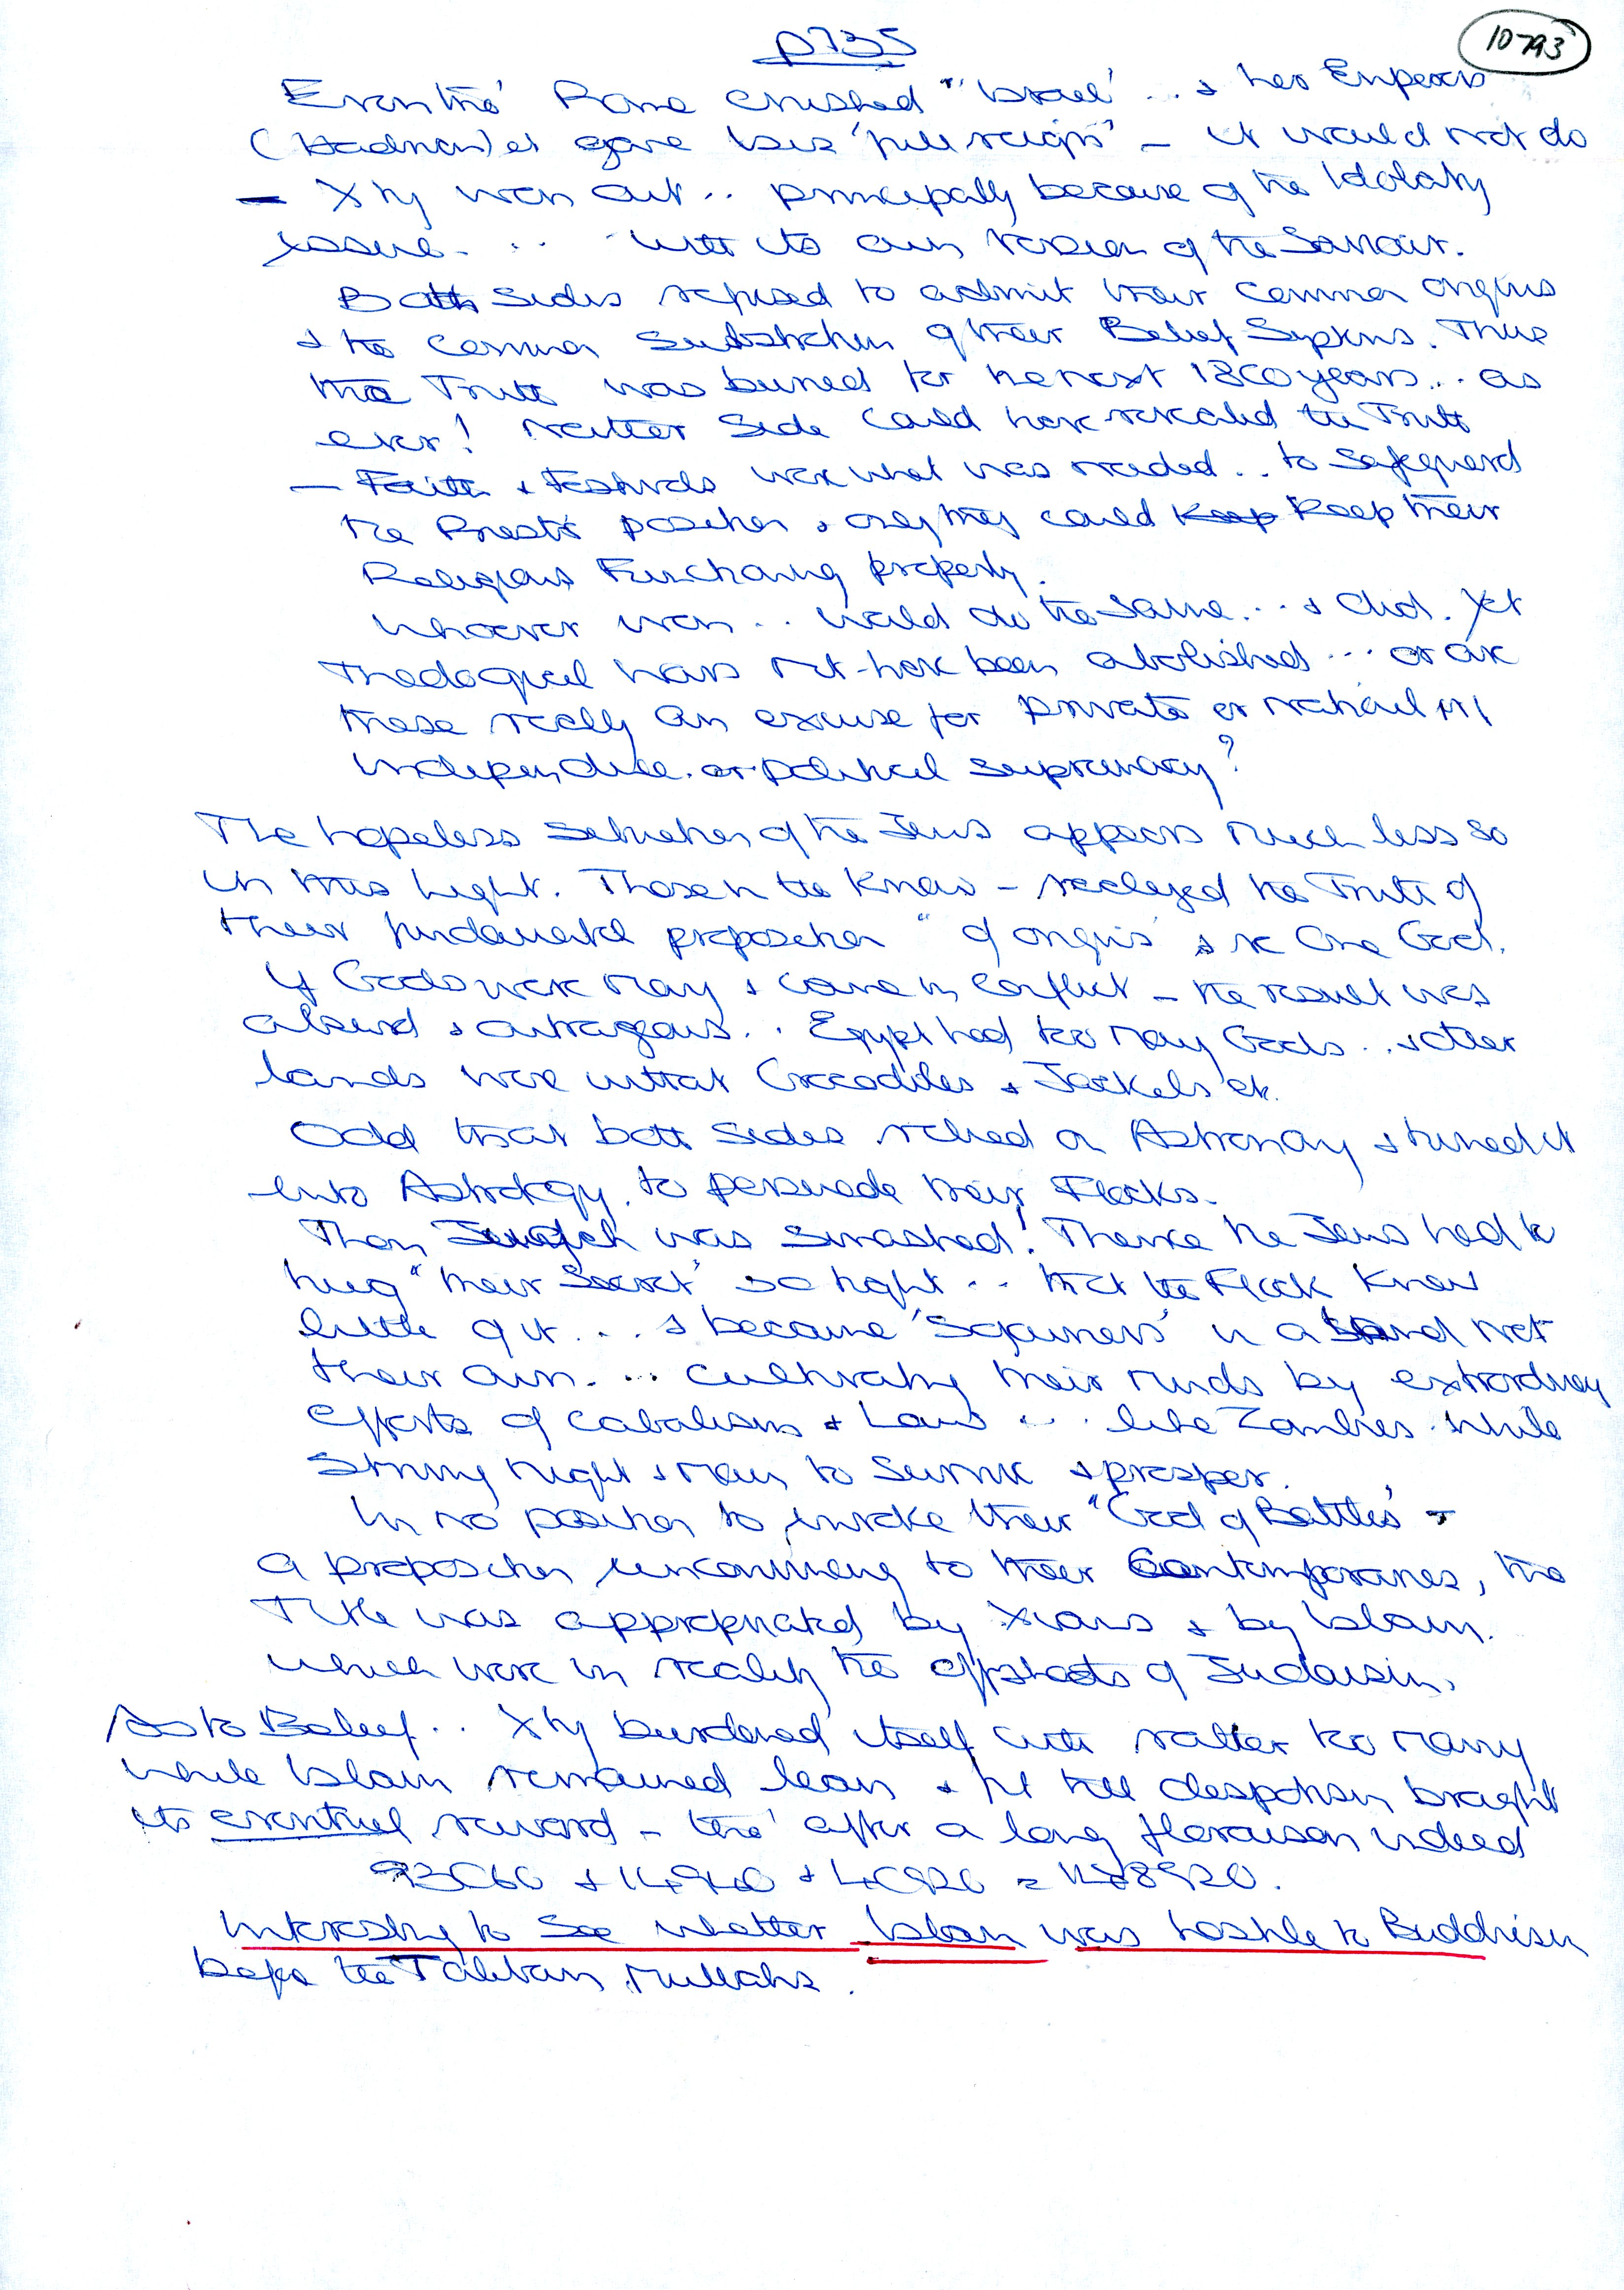 p735
10793
Even tho' Rome crushed "Israel' ... & her Emperors
(Hadrian) et gave Isis 'full reign' - it would not do
- Xty won out .. principally because of the Idolatry
issue. .. with its own version of the Saviour.
Both sides refused to admit their common origins
& the common substratum of their Belief Systems. Thus
the Truth was buried for the next 1800 years... as
ever! Neither side could have revealed the Truth
- Faith & Festivals were what was needed .. to safeguard
the Priests' position & only they could Keep Keep their
Religious Functioning properly.
Whoever won .. would do the same ... & did. Yet
Theological wars not have been abolished ... or are
these really an excuse for private or national
independence. or political supremacy?
The hopeless situation of the Jews appears much less so
in this light. Those in the know - realized the Truth of
their fundamental proposition "of origins' & One God.
If Gods were many & came in conflict - the result was
absurd & outrageous .. Egypt had too many Gods .. & other
lands were without Crocodiles & Jackals et.
Odd that both sides relied on Astronomy & turned it
into Astrology, to persuade their Flocks.
Then was smashed! Thence the Jews had to
hug "their Secret' so tight ... that the Flock knew
little of it ... & became 'Sojourners' in a land not
their own. ... cultivating their minds by extraordinary
efforts of cabalism & Laws ... like Zombies. while
striving might & main to survive & prosper.
In no position to invoke their "God of Battles' -
a proposition unconvincing to their Contemporaries, the
Title was appropriated by Xians & by Islam.
which were in reality the offshoots of Judaism.
As to Belief .. Xty burdened itself with rather too many
while Islam remained lean & fit till despotism brought
its eventual reward - tho' after a long floraison indeed
93060 + 14940 + 40920 = 148920.
Interesting to see whether Islam was hostile to Buddhism
before the Taliban Mullahs.